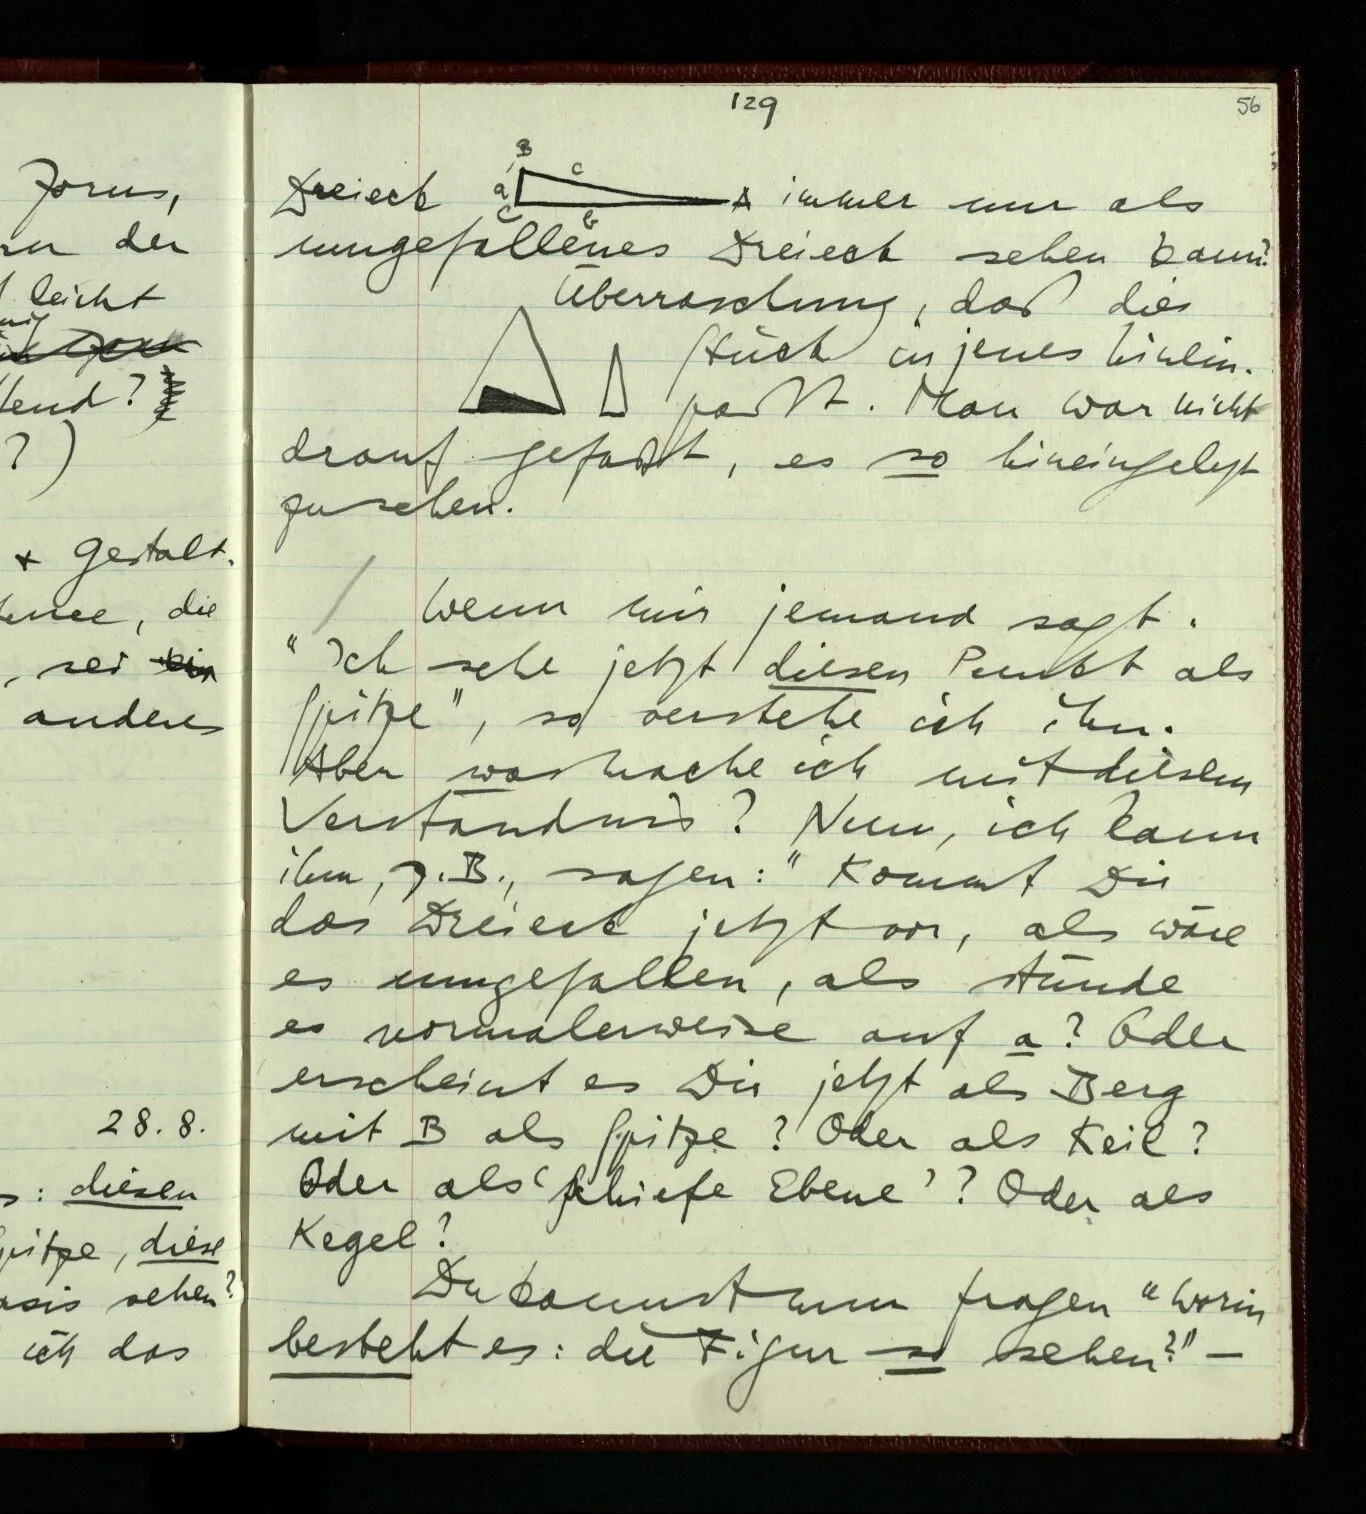 129
56
Zorns,
der
leicht
?)
+ Gestalt.
, die
, sei
anderes
28.8.
: diesen
, diese
sehen?
ich das
B
Dreieck a c A immer nur als
C b
umgefallenes Dreieck sehen kann?
Überraschung, daß dies
Stück in jenes hinein-
paßt. Man war nicht
drauf gefaßt, es so hineingelegt
zu sehen.
/ Wenn mir jemand sagt.
"Ich sehe jetzt diesen Punkt als
Spitze", so verstehe ich ihn.
Aber was mache ich mit diesem
Verständnis? Nun, ich kann
ihm, z.B., sagen: "Kommt Dir
das Dreieck jetzt vor, als wäre
es umgefallen, als stünde
es normalerweise auf a? Oder
erscheint es Dir jetzt als Berg
mit B als Spitze? Oder als Keil?
Oder als 'schiefe Ebene'? Oder als
Kegel?
Du kannst nun fragen "Worin
besteht es: die Figur so sehen?" –